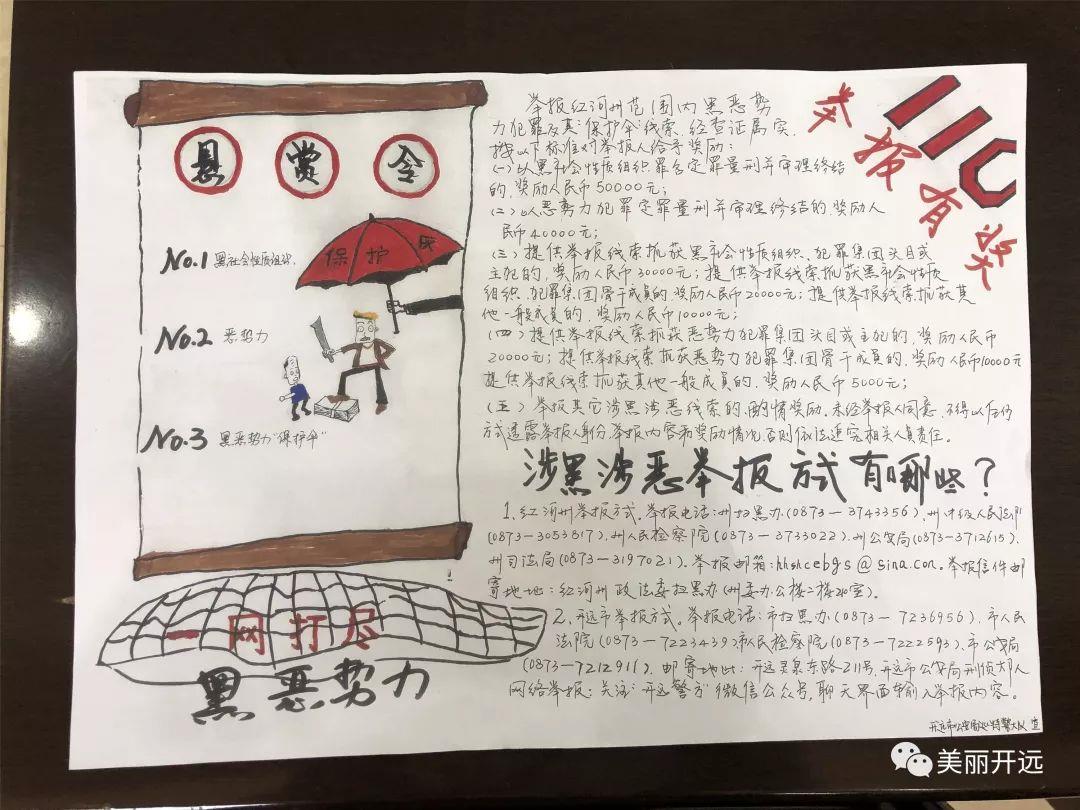 悬赏令
No.1 黑社会性质组织.
No.2 恶势力
No.3 黑恶势力"保护伞"
保护
一网打尽
黑恶势力
110
举报有奖
举报红河州范围内黑恶势
力犯罪及其"保护伞"线索,经查证属实,
按以下标准对举报人给予奖励:
(一)以黑社会性质组织罪名定罪量刑并审理终结
的,奖励人民币50000元;
(二)以恶势力犯罪定罪量刑并审理终结的,奖励人
民币40000元;
(三)提供举报线索抓获黑社会性质组织、犯罪集团头目或
主犯的,奖励人民币30000元;提供举报线索抓获黑社会性质
组织、犯罪集团骨干成员的,奖励人民币20000元;提供举报线索抓获其
他一般成员的,奖励人民币10000元;
(四)提供举报线索抓获恶势力犯罪集团头目或主犯的,奖励人民币
20000元;提供举报线索抓获恶势力犯罪集团骨干成员的,奖励人民币10000元
提供举报线索抓获其他一般成员的,奖励人民币5000元;
(五)举报其它涉黑涉恶线索的,酌情奖励,未经举报人同意,不得以任何
方式透露举报人身份、举报内容和奖励情况,否则依法追究相关人员责任。
涉黑涉恶举报方式有哪些?
1、红河州举报方式。举报电话:州扫黑办(0873—3743356)、州中级人民法院
(0873—3053517)、州人民检察院(0873—3733022)、州公安局(0873—3712615)、
州司法局(0873—3197021)。举报邮箱:hhshcebgs@sina.con。举报信件邮
寄地地:红河州政法委扫黑办(州委办公楼二楼210室)。
2、开远市举报方式。举报电话:市扫黑办(0873—7236956)、市人民
法院(0873—7223439)、市民检察院(0873—7222593)、市公安局
(0873—7212911)。邮寄地址:开远灵泉东路211号,开远市公安局刑侦大队
网络举报:关注"开远警方"微信公众号,聊天界面中输入举报内容。
开远市公安局特警大队 宣
美丽开远